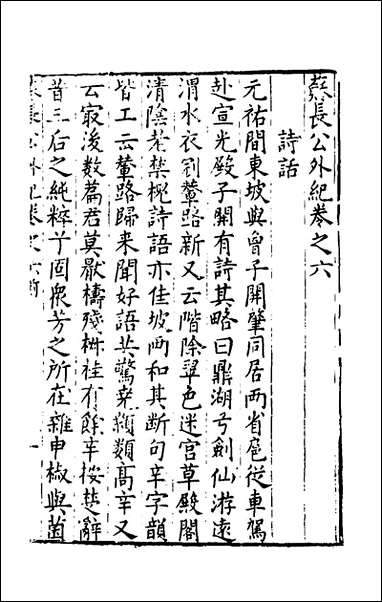 蘇長公外紀卷之六
詩話
元祐間東坡與曾子開肇同居兩省扈從車駕
赴宣光殿子開有詩其略曰鼎湖弓劍仙游遠
渭水衣冠輦路新又云階除翠色迷宮草殿閣
清陰老禁槐詩語亦佳坡兩和其断句辛字韻
皆工云輦路歸来聞好語共驚堯顙類高辛又
云㝡後数篇君莫厭擣殘椒桂有餘辛按楚辭
昔三后之純粹兮固衆芳之所在雜申椒與菌
蘇長公外紀卷之六
一